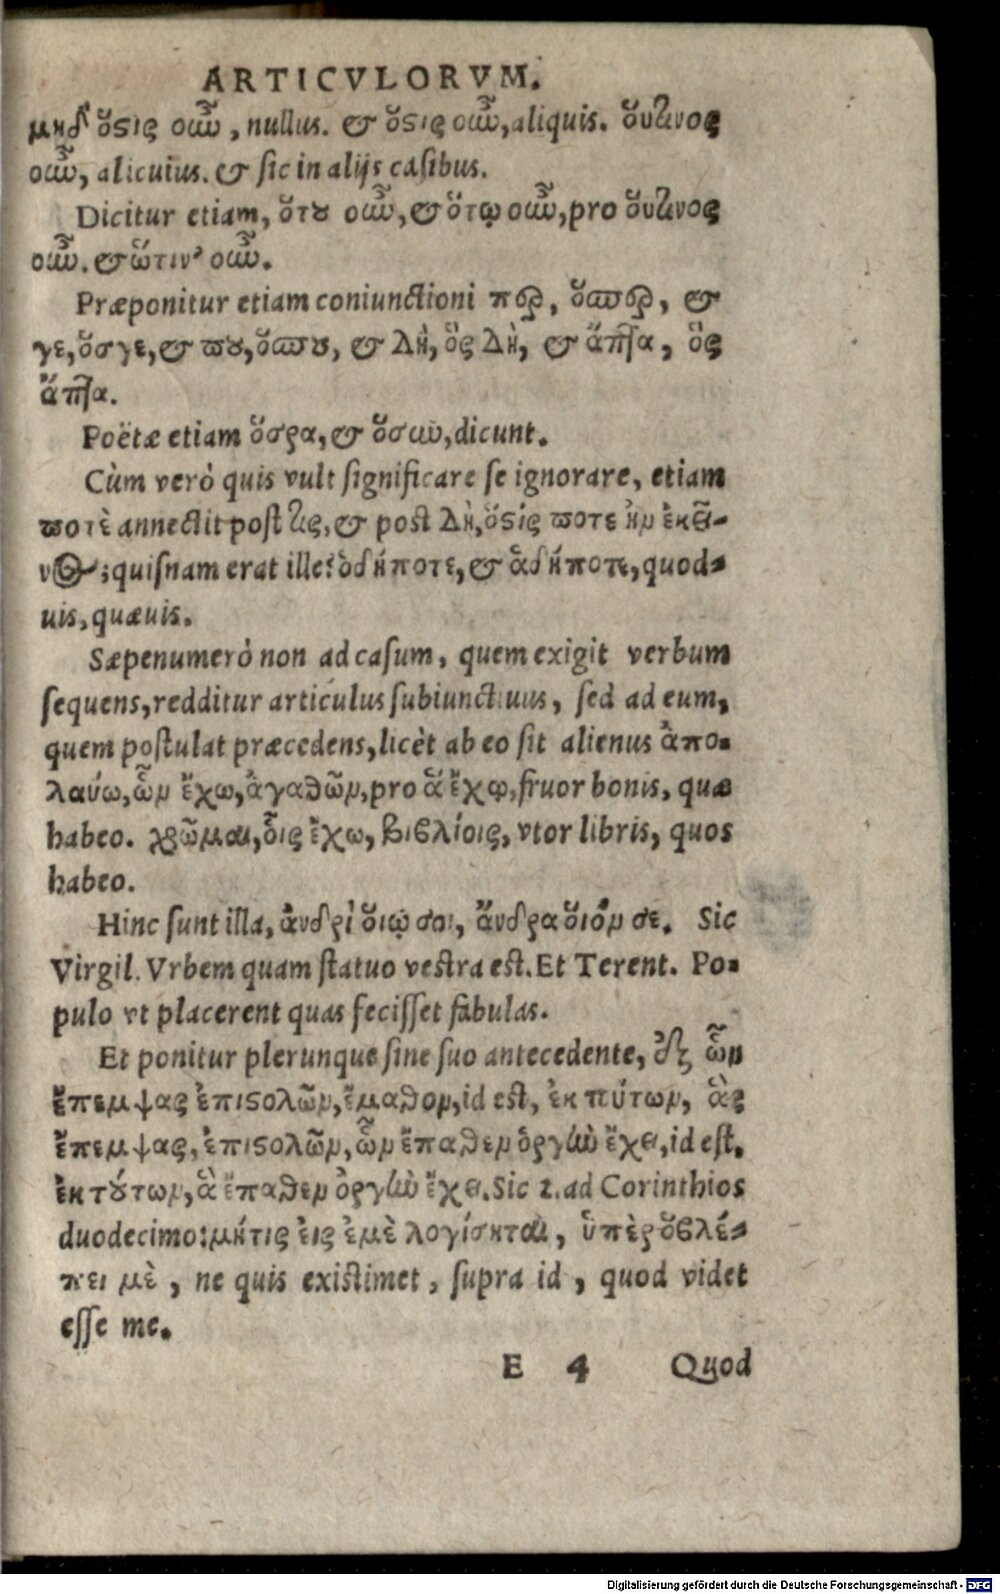 ARTICVLORVM.
μηδ' ὅςις οὖν, nullus. & ὅςις οὖν, aliquis. οὕτινος
οὖν, alicuius. & sic in alijs casibus.
Dicitur etiam, ὅτου οὖν, & ὅτῳ οὖν, pro οὕτινος
οὖν. & ᾧτιν' οὖν.
Præponitur etiam coniunctioni περ, ὅσπερ, &
γε, ὅσγε, & που, ὅσπου, & δὴ, ὃς δὴ, & ἅπτα, ὃς
ἅπτα.
Poëtæ etiam ὅσρα, & ὅσων, dicunt.
Cùm verò quis vult significare se ignorare, etiam
ποτὲ annectit post τις, & post δὴ, ὅςίς ποτε ἦν ἐκεῖ-
νος; quisnam erat ille? ὁδήποτε, & ἁδήποτε, quod-
uis, quæuis.
Sæpenumerò non ad casum, quem exigit verbum
sequens, redditur articulus subiunctiuus, sed ad eum,
quem postulat præcedens, licèt ab eo sit alienus ἀπο-
λαύω, ὧν ἔχω, ἀγαθῶν, pro ἃ ἔχω, fruor bonis, quæ
habeo. χρῶμαι, οἷς ἔχω, βιβλίοις, vtor libris, quos
habeo.
Hinc sunt illa, ἀνδρὶ ὁιῳ σοι, ἄνδρα ὁιὸν σε. Sic
Virgil. Vrbem quam statuo vestra est. Et Terent. Po-
pulo vt placerent quas fecisset fabulas.
Et ponitur plerunque sine suo antecedente, ἐξ ὧν
ἔπεμψας ἐπιςολῶν, ἔμαθον, id est, ἐκ τούτων, ἃς
ἔπεμψας, ἐπιςολῶν, ὧν ἔπαθεν ὀργὴν ἔχει, id est,
ἐκ τούτων, ἃ ἔπαθεν ὀργὴν ἔχει. Sic 2. ad Corinthios
duodecimo: μήτις εἰς ἐμὲ λογίσηται, ὑπὲρ ὃ βλέ-
πει μὲ, ne quis existimet, supra id, quod videt
esse me.
E 4 Quod
Digitalisierung gefördert durch die Deutsche Forschungsgemeinschaft - DFG